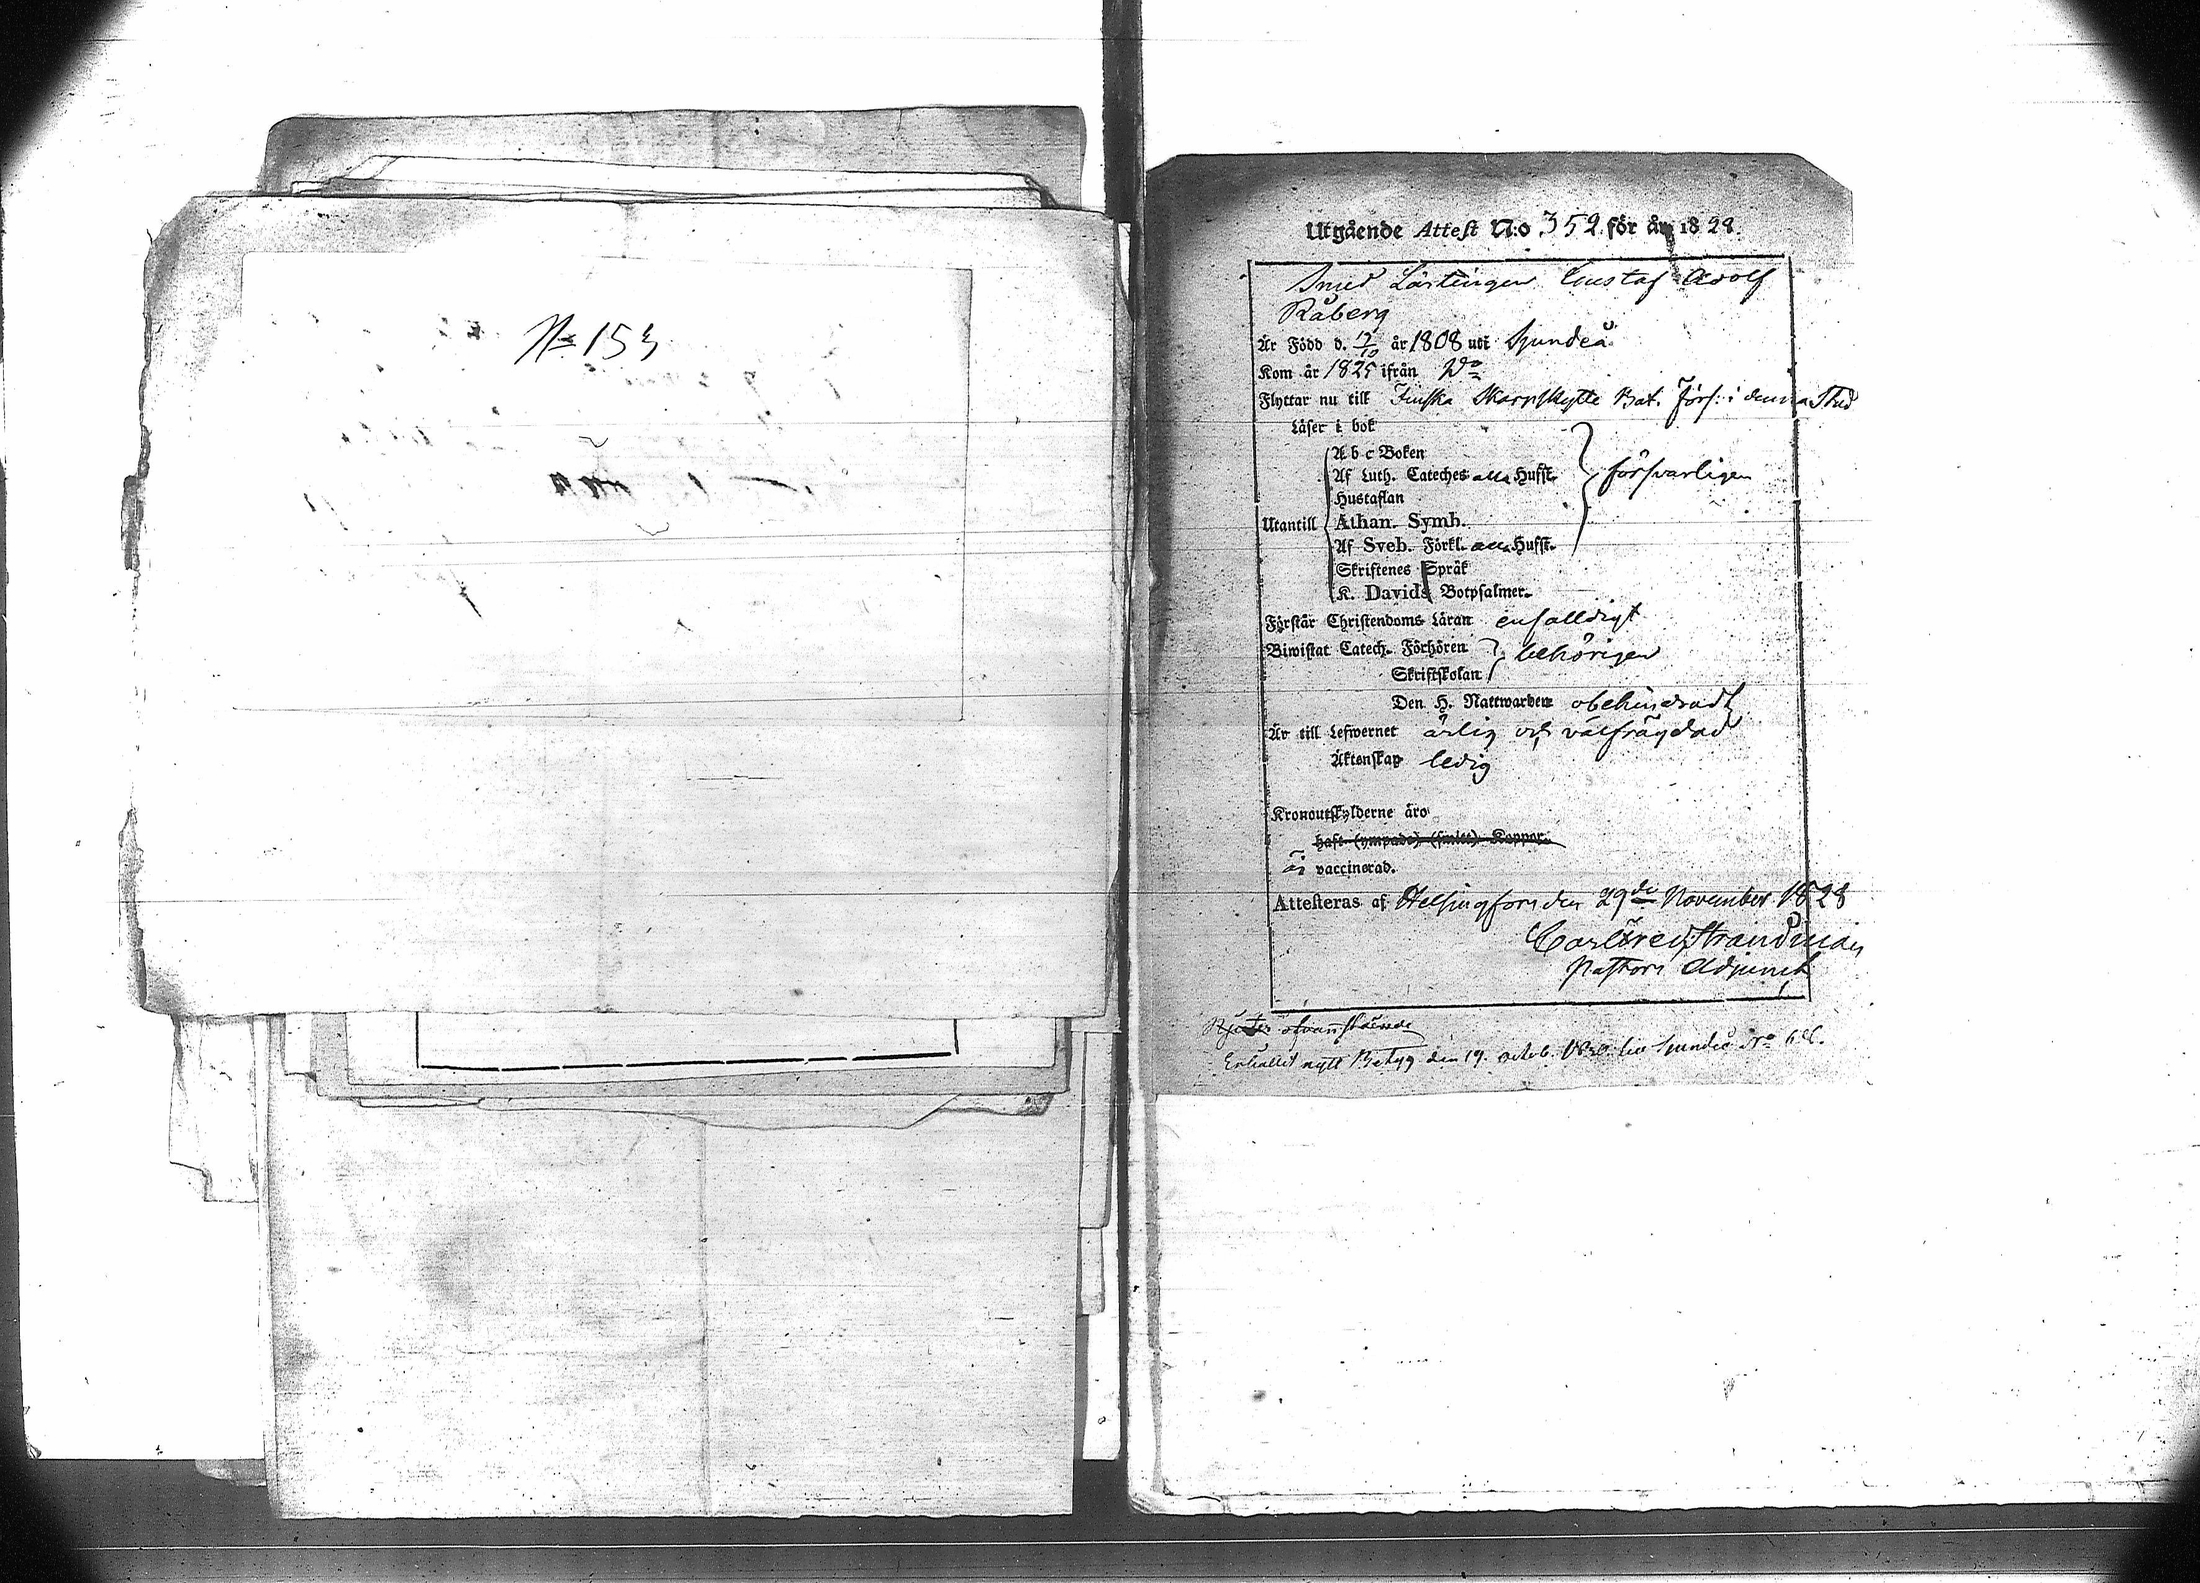 No 153
Utgående Attest N:o 352 för år 1828.
Smed Lärlingen Gustaf Adolf
Råberg
Är Född d. 12/10 år 1808 uti Sjundeå
Kom år 1825 ifrån Do
Flyttar nu till Finska Skarpskytte Bat. Förs: i denna Stad
Läser i bok
A b c Boken
Af Luth. Cateches alla Hufst.
Hustaflan
försvarligen
Utantill
Athan. Symb.
Af Sveb. Förkl. alla Hufst.
Skriftenes Språk
K. Davids Botpsalmer.
Förstår Christendoms Läran enfalldigt
Biwistat Catech. Förhören behörigen
Skriftskolan
Den H. Nattwarden obehindradt
Är till Lefwernet ärlig och välfrägdad
Äktenskap ledig
Kronoutskylderne äro
haft (ympade) (smitt) Koppor.
är vaccinerad.
Attesteras af Helsingfors den 29de November 1828
Carl Strandman
Pastors Adjunct
ofvanstående
Erhållit nytt Betyg den 19. octob. 1830 till Sjundeå No 68.